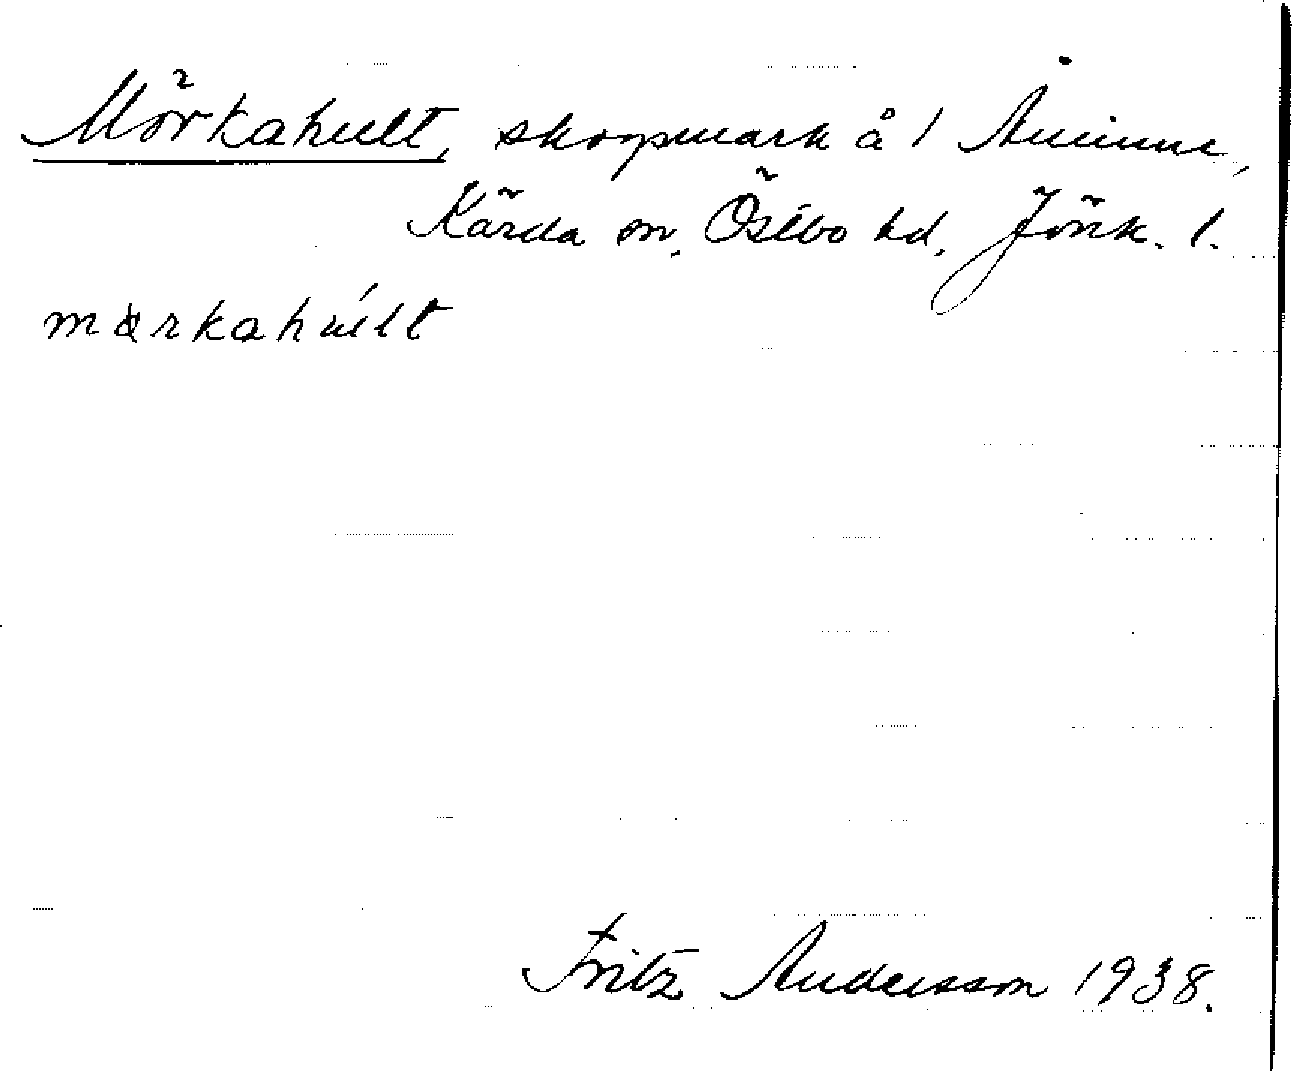 Mörkahult, skogsmark å 1 Åminne,
Kärda sn, Östbo hd, Jönk. l.
mərkahúlt
Fritz Andersson 1938.